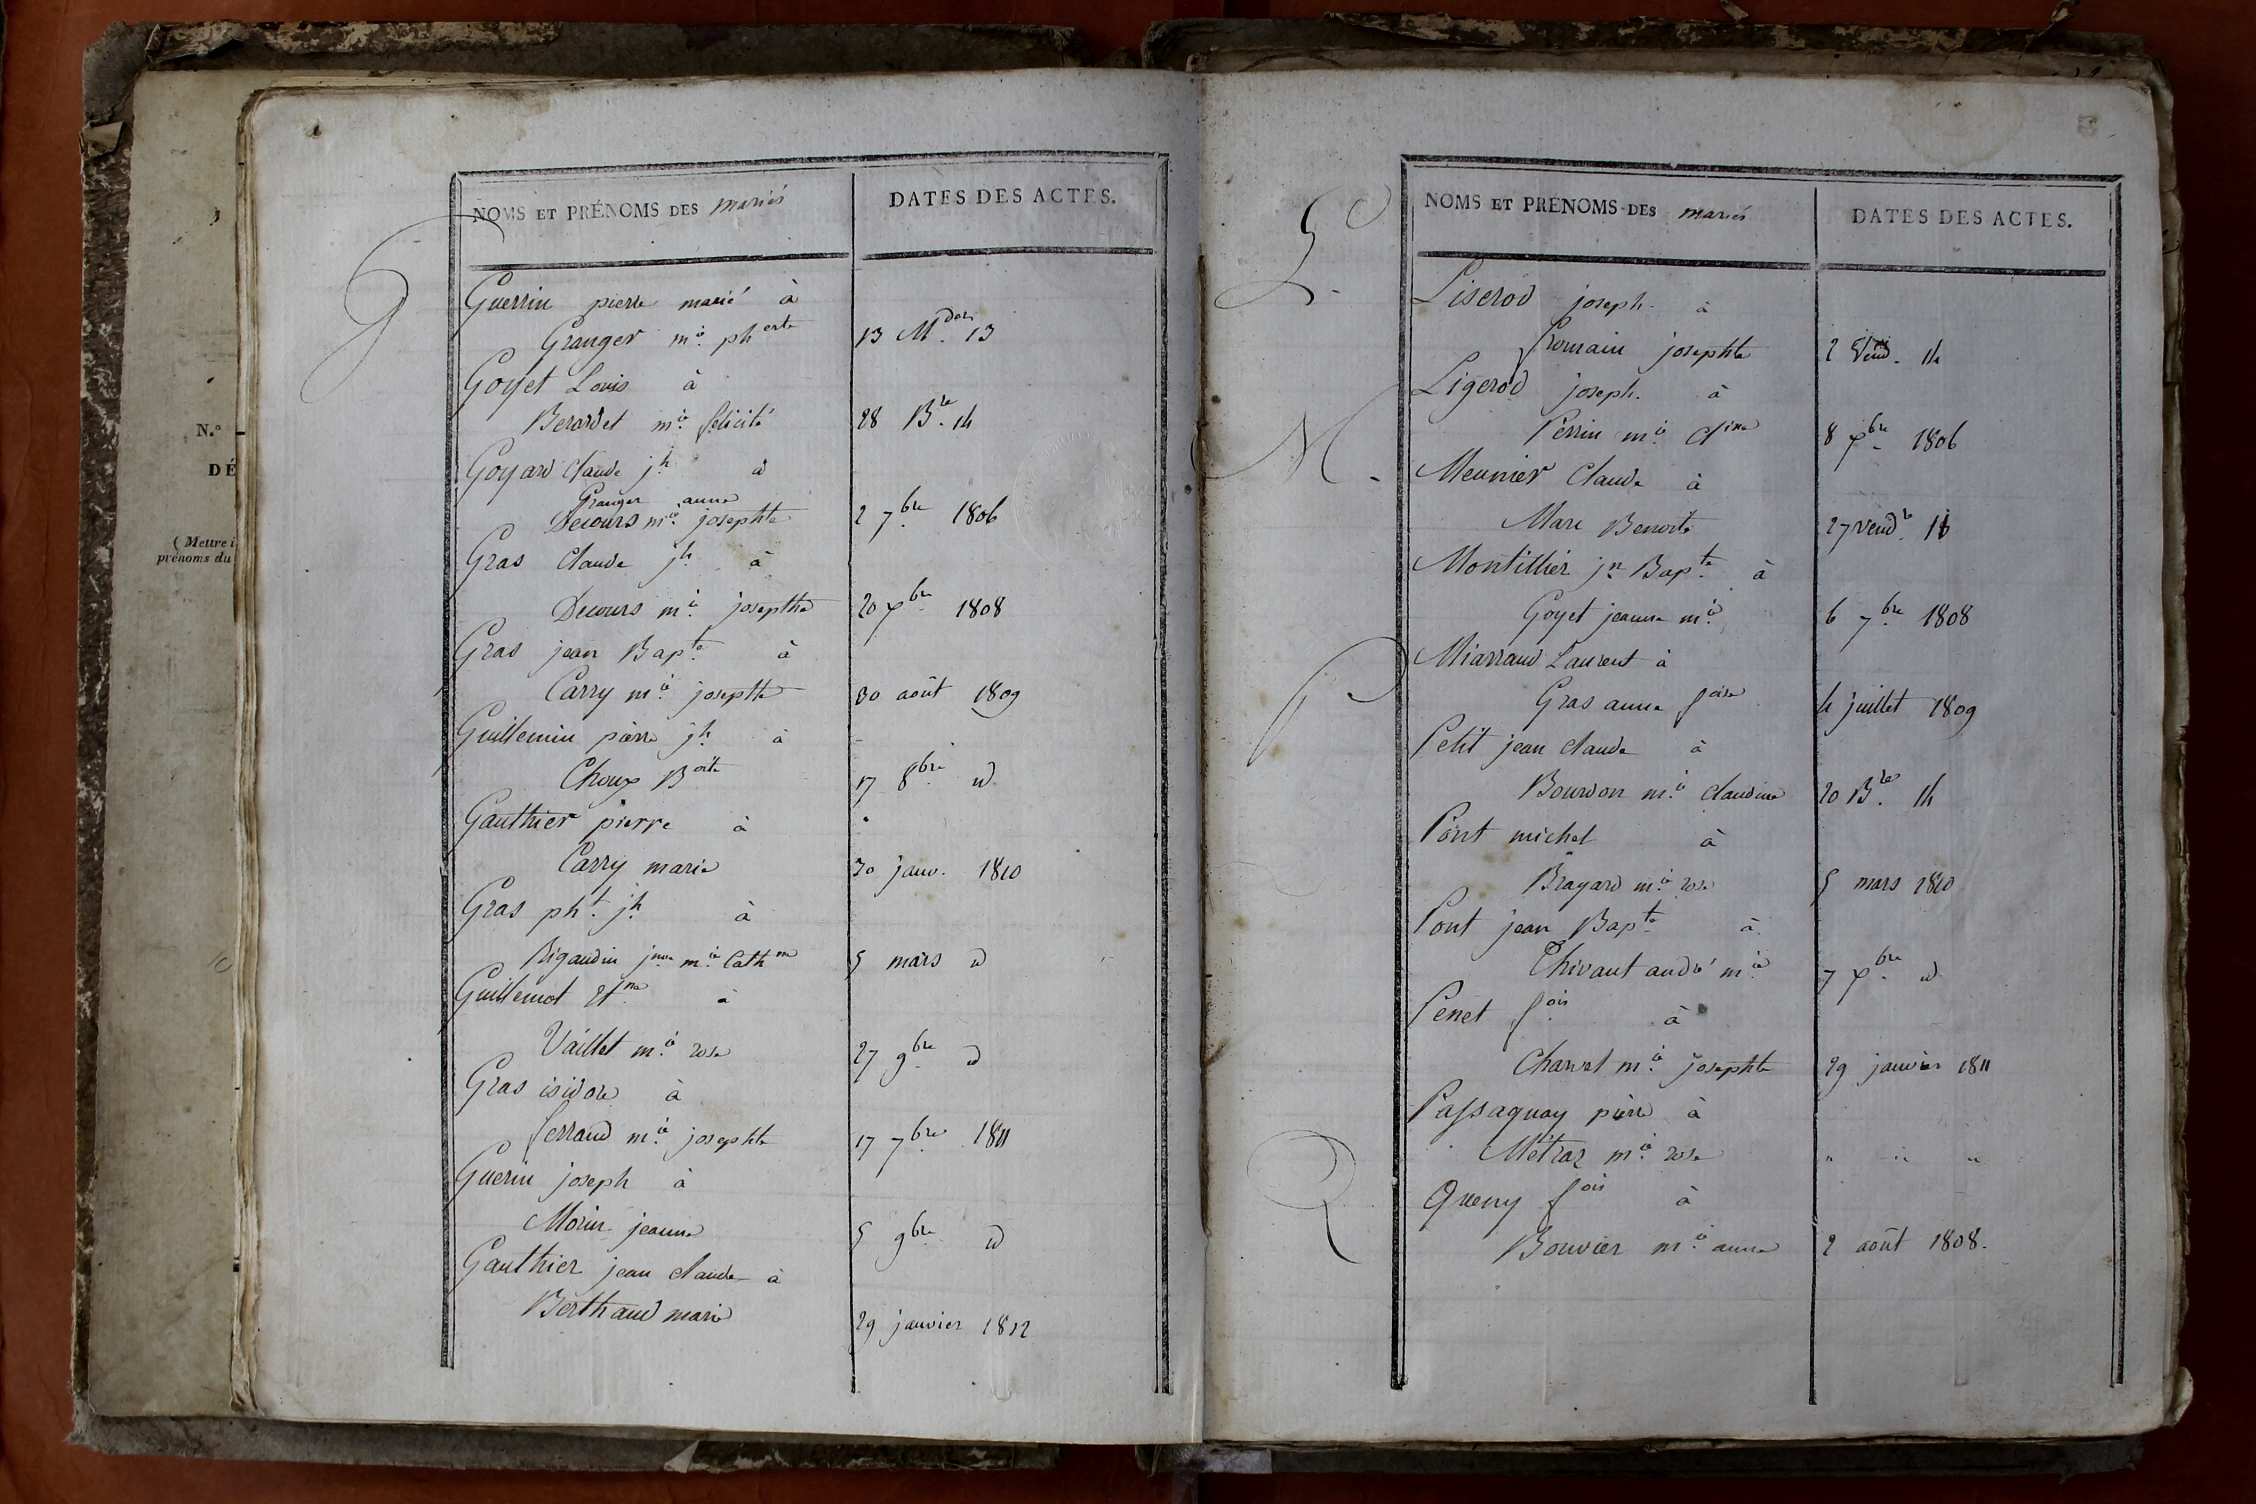 N.º
DÉ
( Mettre i
prénoms du
NOMS ET PRÉNOMS DES mariés
DATES DES ACTES.
G
Guerrin pierre marié à
Granger mie pherte 13 Mdor. 13
Goyet Louis à
Berardet mie félicité 28 Bre. 14
Goyard claude jh à
Granger anne
Decours mie josephte 2 7bre 1806
Gras claude jh à
Decours mie josephte 20 xbre 1808
Gras jean Bapte à
Carry mie josephte 30 août 1809
Guillemin pierre jh à
Choux Boite 17 8bre id
Gauthier pierre à
Carry marie 30 janv. 1810
Gras pht. jh à
Rigaudin jnne mie Cathne 5 mars id
Guillemot à
Vaillet mie rose 27 9bre id
Gras isidore à
ferraud mie josephte 17 7bre 1811
Guerin joseph à
Morin jeanne 5 9bre id
Gauthier jean claude à
Berthaud marie
29 janvier 1812
NOMS ET PRÉNOMS DES mariés
DATES DES ACTES.
L.
Liserod joseph. à
fourain josephte 2 Vend. 14
Ligerod joseph. à
Perrin mie Cline 8 xbre 1806
M.
Meunier Claude à
Mare Benoite 27 vendre
Montillier jn Bapte à
Goyet jeanne mie 6 7bre 1808
Miarraud Laurent à
Gras anne foise 4 juillet 1809
P
Petit jean claude à
Bourdon mie claudine 20 Bre. 14
Pont michel à
Brayard mie rose 5 mars 1810
Pont jean Bapte à
Thivant andré mie 7 xbre id
Penet fois à
Charvet mie josephte 29 janvier 1811
Passaquay pierre à
Métraz mie rose " " "
Q
Queny fois à
Bouvier mie anne 2 août 1808.